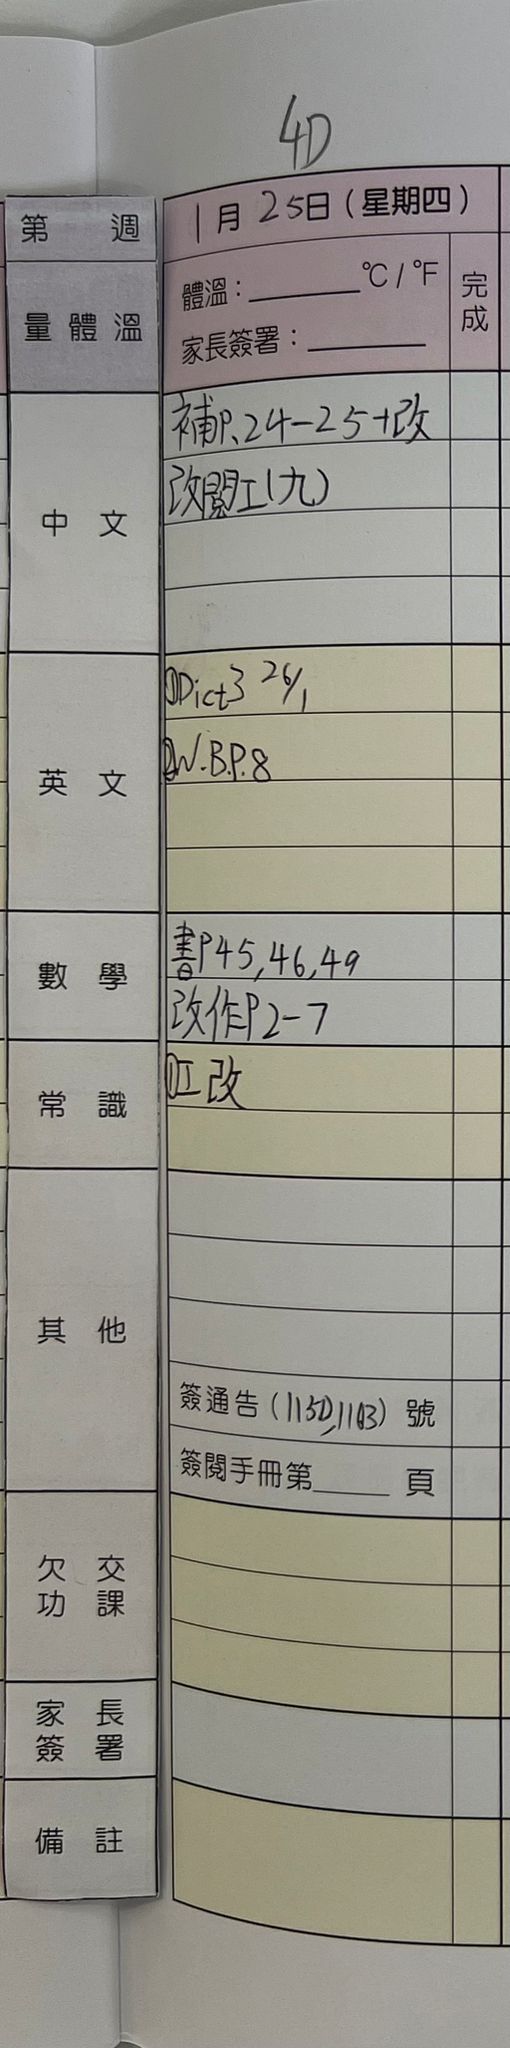 4D
第 週
1月25日(星期四)
量體溫
體溫：______°C/°F
家長簽署：______
完成
中文
補P.24-25+改
改閱工(九)
英文
①Dict3 26/1
②W.B.P.8
數學
書P45,46,49
改作P2-7
常識
①工改
其他
簽通告(115D,1103)號
簽閱手冊第______頁
欠交
功課
家長
簽署
備註